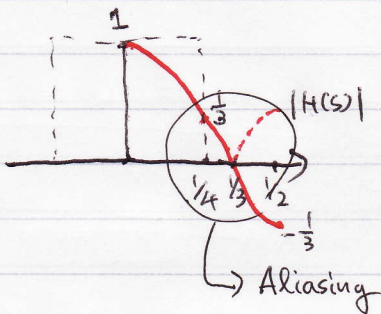 1
|H(S)|
1/3
1/4 1/3 1/2
-1/3
Aliasing